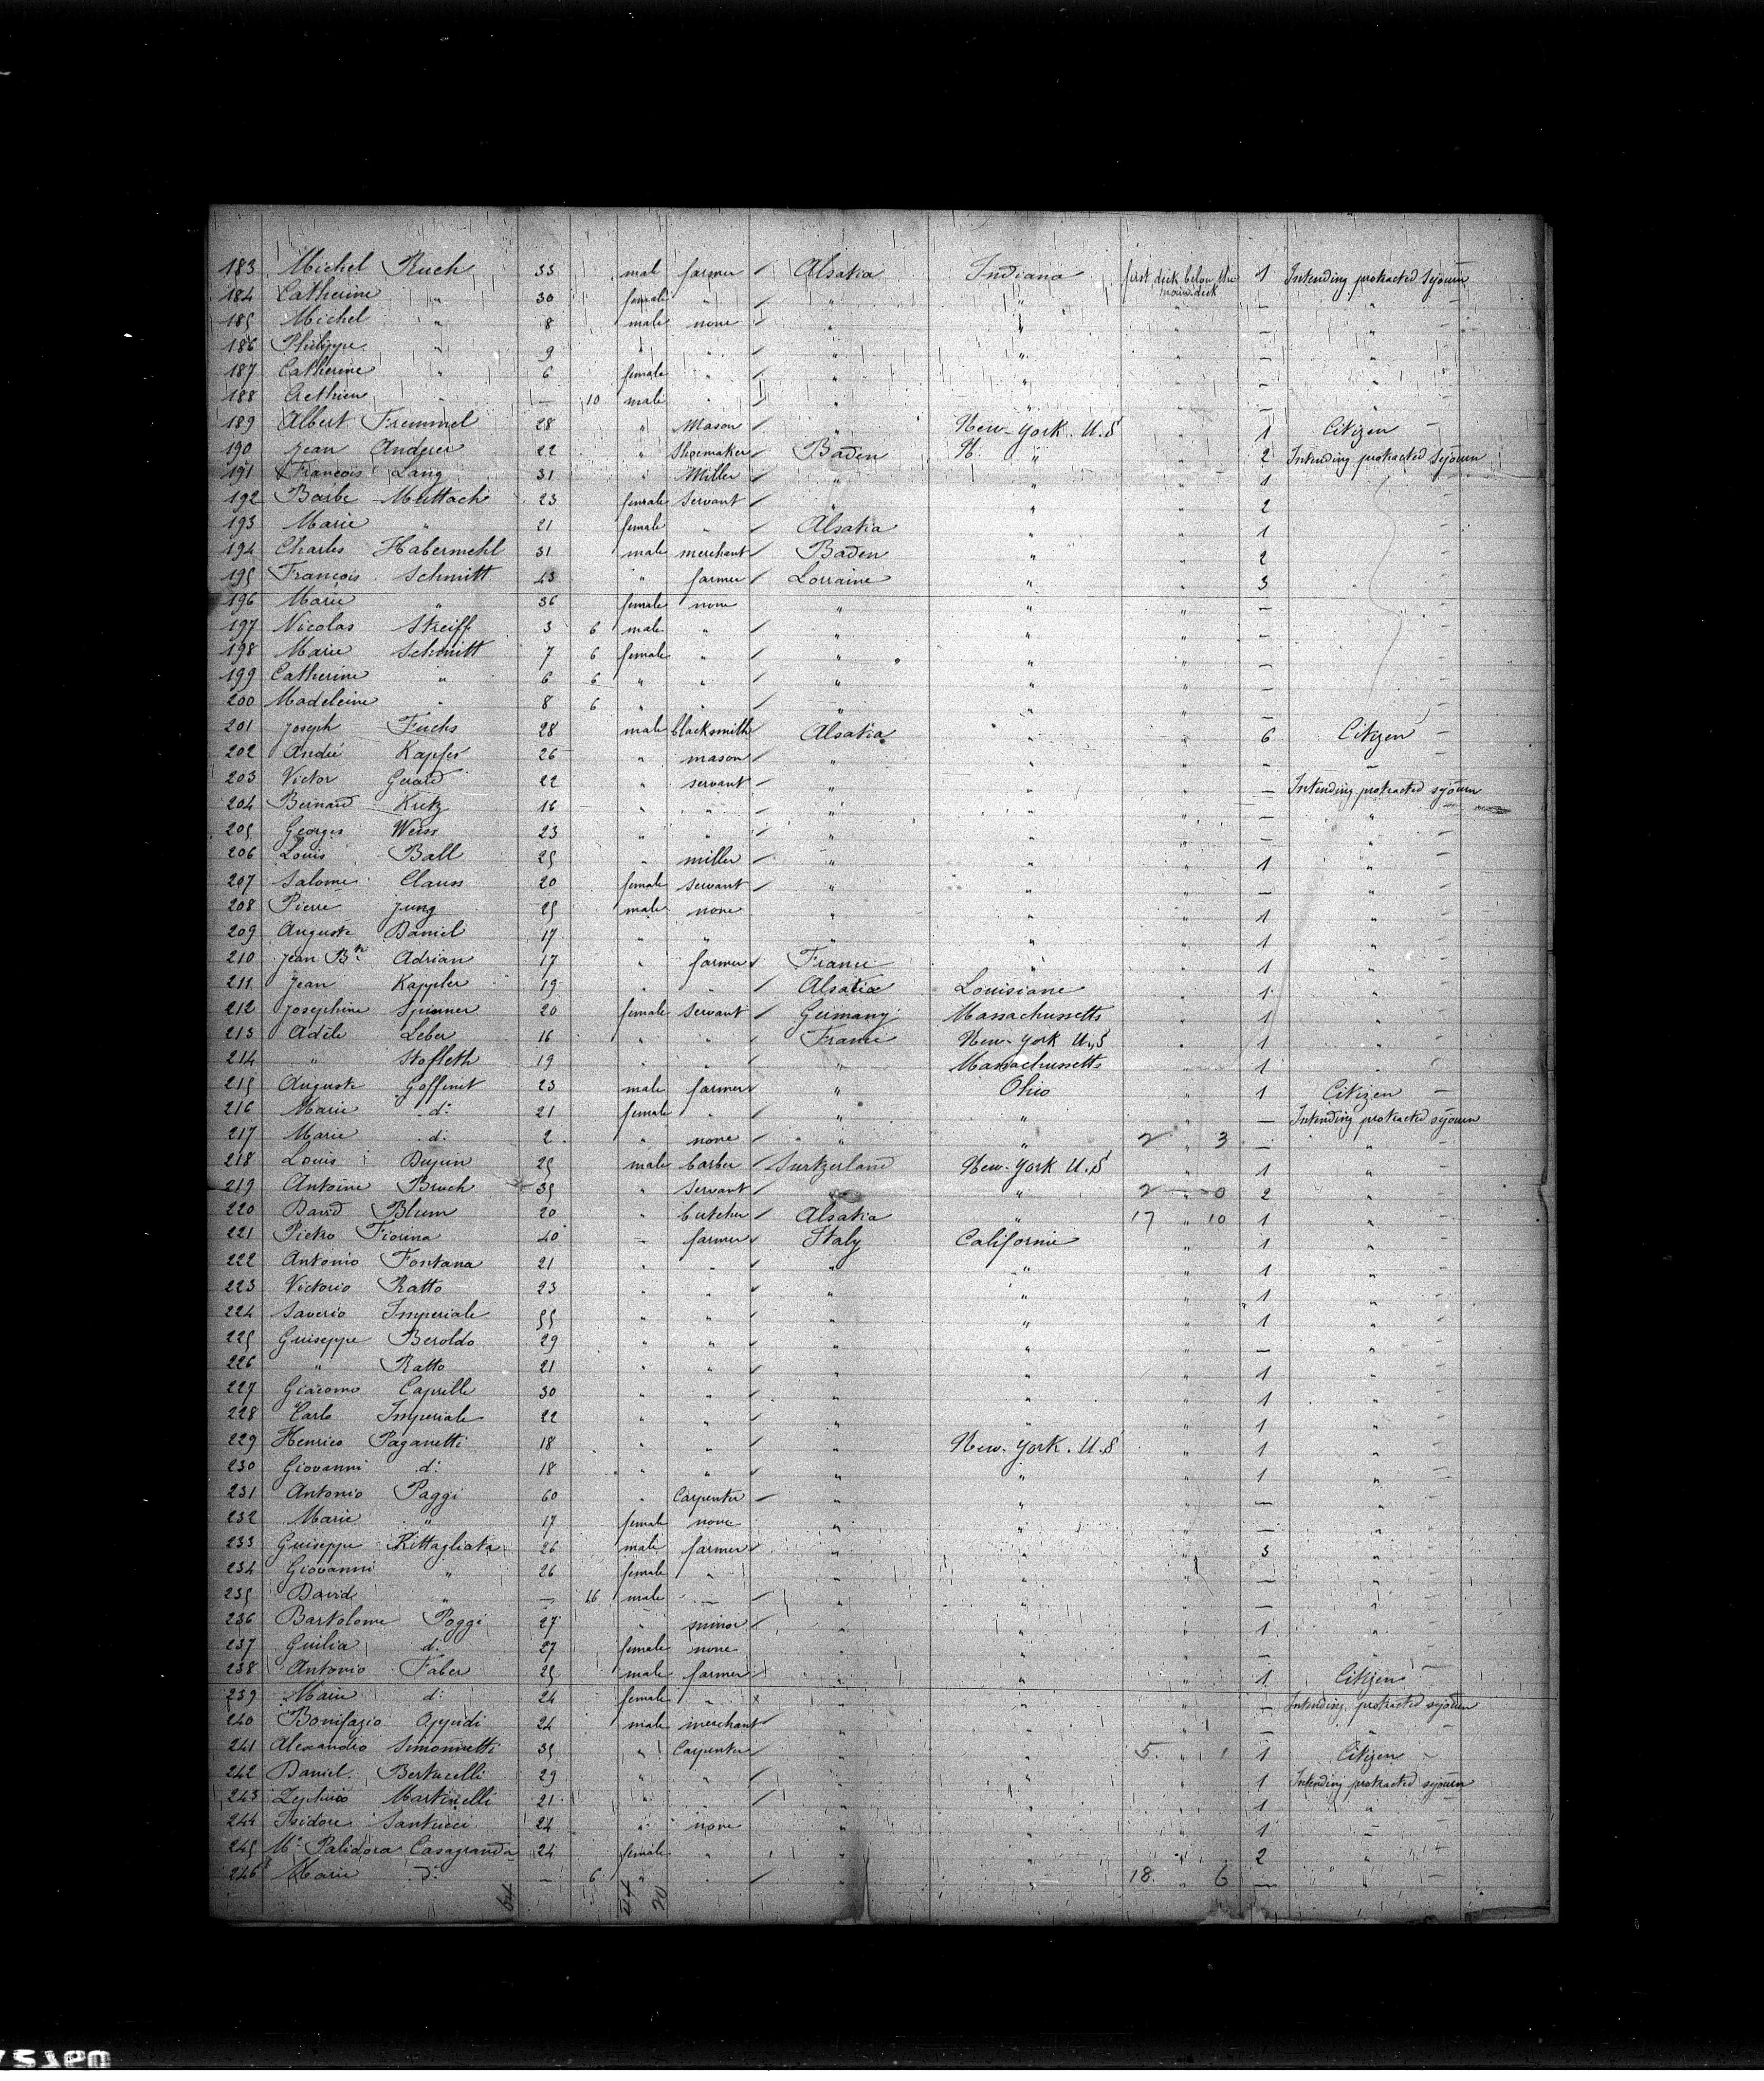 183 Michel Ruch 33 mal farmer Alsatia Indiana first deck below the main deck 1 Intending protracted sejourn
184 Catherine " 30 female " " " " — "
185 Michel " 8 male none " " " — "
186 Philippe " 9 " " " " " — "
187 Catherine " 6 female " " " " — "
188 " — 10 male " " " " — "
189 Albert Fremmel 28 " Mason " New-York. U.S " 1 Citizen —
190 Jean Anderer 22 " Shoemaker Baden N. " " 2 Intending protracted Sejourn
191 Francois Lang 31 " Miller " " " 1
192 Barbe Muttach 23 female Servant " " " 2
193 Marie " 21 female " Alsatia " " 1
194 Charles Habermehl 31 male merchant Baden " " 2
195 François Schmitt 43 " farmer Lorraine " " 3
196 Marie " 36 female none " " " —
197 Nicolas Streiff 3 6 male " " " " —
198 Marie Schmitt 7 6 female " " " " —
199 Catherine " 6 6 " " " " " —
200 Madeleine " 8 6 " " " " " —
201 Joseph Fuchs 28 male blacksmith Alsatia " " 6 Citizen —
202 André Kapfer 26 " mason " " " " "
203 Victor Gerard 22 " servant " " " — Intending protracted sejourn
204 Bernard Kretz 16 " " " " " — "
205 Georges Weiss 23 " " " " " — "
206 Louis Ball 25 " miller " " " 1 "
207 Salome Clauss 20 female servant " " " — "
208 Pierre Jung 25 male none " " " 1 "
209 Auguste Daniel 17 " " " " " 1 "
210 Jean Bte Adrian 17 " farmer France " " 1 "
211 Jean Kappler 19 " " Alsatia Louisiane " 1 "
212 Josephine Spinner 20 female Servant Germany Massachussetts " 1 "
213 Adèle Leber 16 " " France New-York U.S " 1 "
214 " Stoffleth 19 " " " Massachussetts " 1 "
215 Auguste Goffinet 23 male farmer " Ohio " 1 Citizen —
216 Marie d: 21 female " " " " — Intending protracted sejourn
217 Marie d: 2 " none " " 2 " 3 — "
218 Louis Dupin 25 male barber Surtzerland New-York U.S " 1 "
219 Antoine Bruch 35 " Servant " " 2 " 0 2 "
220 David Blum 20 " butcher Alsatia " 17 " 10 1 "
221 Pietro Fiorina 40 " farmer Italy Californie " 1 "
222 Antonio Fontana 21 " " " " " 1 "
223 Victorio Ratto 23 " " " " " 1 "
224 Saverio Imperiale 55 " " " " " 1 "
225 Guiseppe Beroldo 29 " " " " " — "
226 " Ratto 21 " " " " " 1 "
227 Giacomo Caprille 30 " " " " " 1 "
228 Carlo Imperiale 22 " " " " " 1 "
229 Henrico Paganetti 18 " " " New-York. U.S " 1 "
230 Giovanni d: 18 " " " " " 1 "
231 Antonio Paggi 60 " Carpenter " " " — "
232 Marie " 17 female none " " " — "
233 Guiseppe Rittagliata 26 male farmer " " " 3 "
234 Giovanni " 26 female " " " " — "
235 Davide " — 16 male — " " " — "
236 Bartolome Poggi 27 " minor " " " 1 "
237 Guilia d: 27 female none " " " — "
238 Antonio Faber 25 male farmer " " " 1 Citizen —
239 Marie d: 24 female " " " " — Intending protracted sejourn
240 Bonifazio 24 male merchant " " " — "
241 Alexandro Simonnetti 35 " Carpenter " " 5. " 1 1 Citizen —
242 Daniel Bertucelli 29 " " " " " 1 Intending protracted sejourn
243 Martinelli 21 " " " " " 1 "
244 Isidore Santucci 24 " none " " " 1 "
245 Me Palidora Casagranda 24 female " " " " 2 "
246 Marie D: — 6 " " " " 18. " 6 —
64 44 20